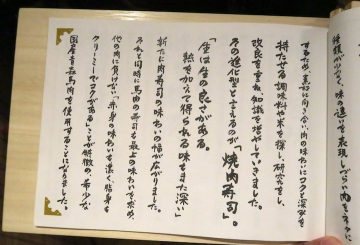 種類が少なく、味の進化を表現しづらい肉を
するため、真摯に向き合い肉の味わいにコクと深みを
持たせる調味料や米を探し、研究をし、
改良を重ね、知識を増していきました。
その進化型と言えるのが「焼肉寿司」。
「生は生の良さがある。
熱を加えて得られる味もまた深い」
新たに肉寿司の味わいの幅が広がりました。
それと同時に馬肉の寿司も最上の味わいを求め、
他の肉に負けない「赤身の味わいも濃く、脂身も
クリーミーでコクがある」ことが特徴の、希少な
国産青森馬肉を使用するようになりました。